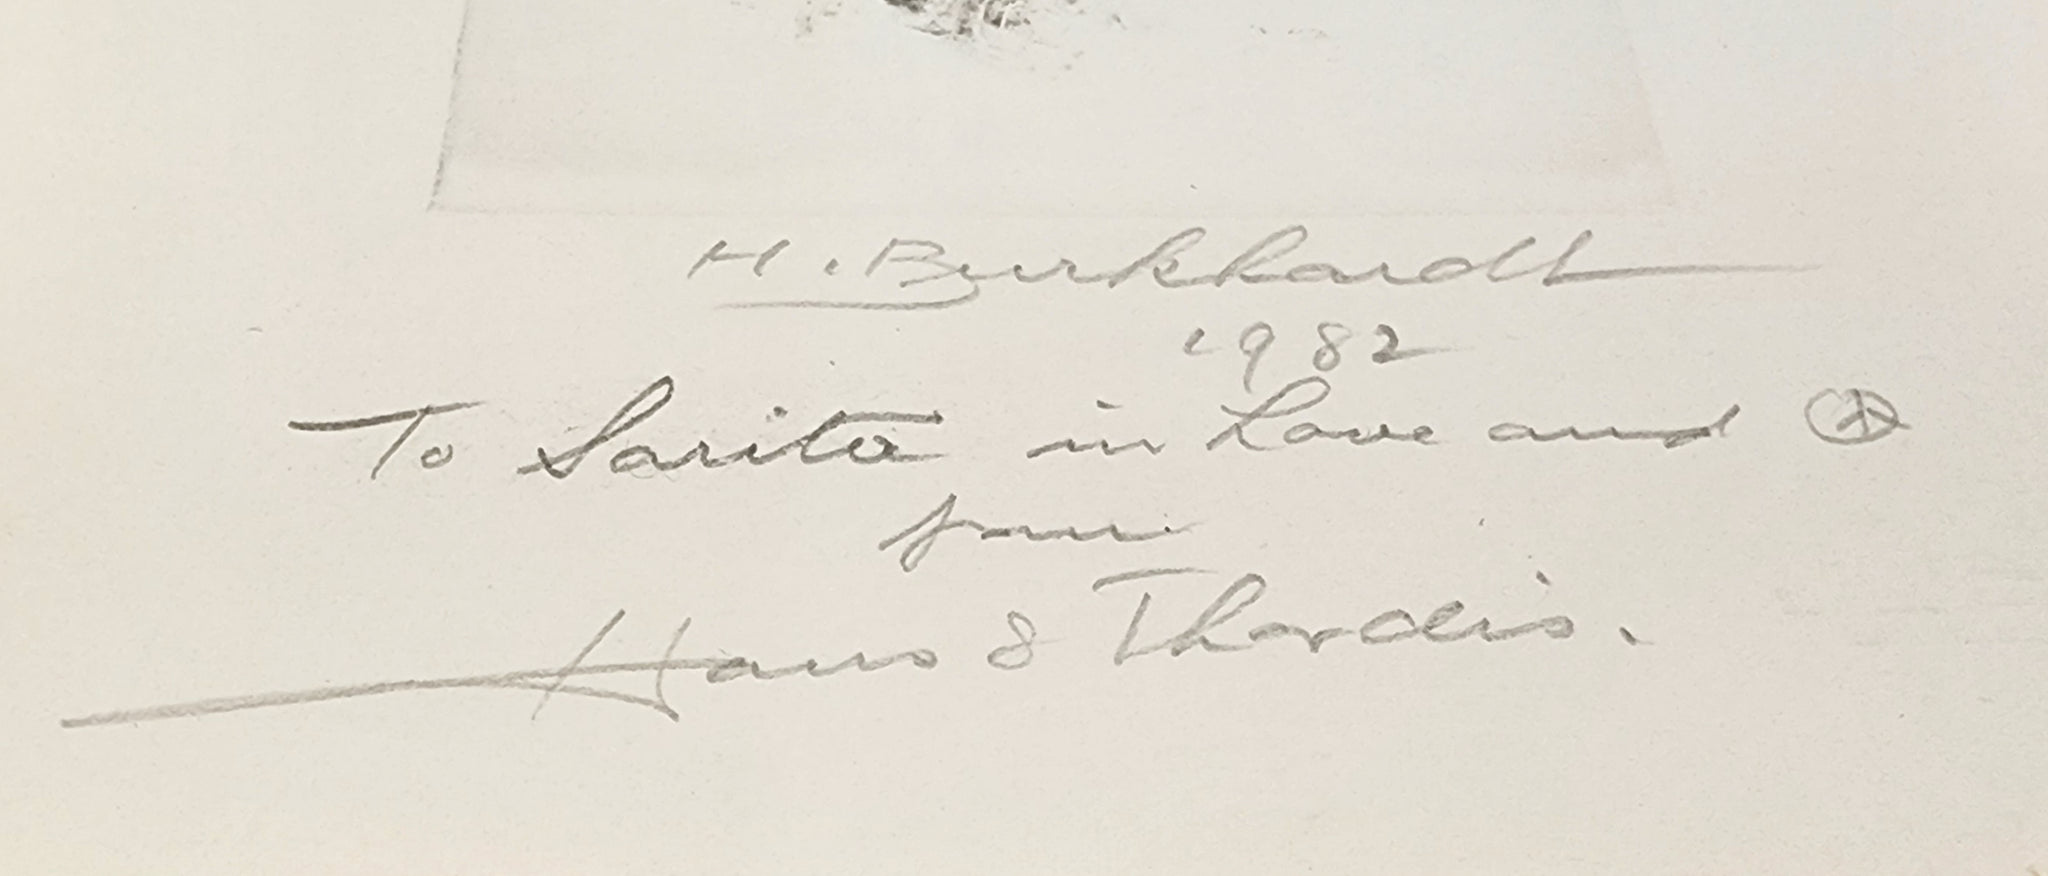 H. Burkhardt
1982
To Sarita in Love and ☮
from
Hans & Thordis.